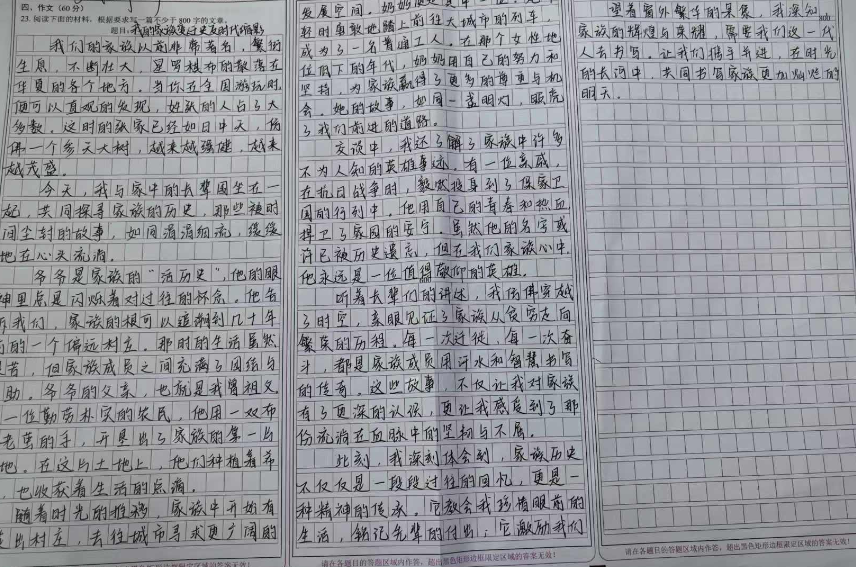 四、作文（60分）
23. 阅读下面的材料，根据要求写一篇不少于800字的文章。
题目：我的家族变迁史及时代缩影
我们的家族从前非常著名，繁衍
生息，不断壮大，星罗棋布的散落在
华夏的各个地方。当你在全国游玩时，
便可以直观的发现，姓张的人占了大
多数。这时的张家已经如日中天，仿
佛一个参天大树，越来越强健，越来
越茂盛。
今天，我与家中的长辈围坐在一
起，共同探寻家族的历史，那些被时
间尘封的故事，如同涓涓细流，缓缓
地在心头流淌。
爷爷是家族的“活历史”，他的眼
神里总是闪烁着对过往的怀念。他告
诉我们，家族的根可以追溯到几十年
前的一个偏远村庄。那时的生活虽然
艰苦，但家族成员之间充满了团结与
助。爷爷的父亲，也就是我曾祖父
一位勤劳朴实的农民，他用一双布
老茧的手，开垦出了家族的第一片
地。在这片土地上，他们种植着希
，也收获着生活的点滴。
随着时光的推移，家族中开始有
走出村庄，去往城市寻求更广阔的
发展空间。奶奶
轻时勇敢地踏上前往大城市的列车，
成为了一名普通工人。在那个女性地
位低下的年代，奶奶用自己的努力和
坚持，为家族赢得了更多的尊重与机
会。她的故事，如同一盏明灯，照亮
了我们前进的道路。
交谈中，我还了解了家族中许多
不为人知的英雄事迹。有一位亲戚，
在抗日战争时，毅然投身到了保家卫
国的行列中。他用自己的青春和热血
捍卫了家园的安宁。虽然他的名字或
许已被历史遗忘，但在我们家族心中，
他永远是一位值得敬仰的英雄。
听着长辈们的讲述，我仿佛穿越
了时空，亲眼见证了家族从贫穷走向
繁荣的历程。每一次迁徙，每一次奋
斗，都是家族成员用汗水和智慧书写
的传奇。这些故事，不仅让我对家族
有了更深的认识，更让我感受到了那
份流淌在血脉中的坚韧与不屈。
此刻，我深刻体会到，家族历史
不仅仅是一段段过往的回忆，更是一
种精神的传承。它教会我珍惜眼前的
生活，铭记先辈的付出；它激励我们
请在各题目的答题区域内作答，超出黑色矩形边框限定区域的答案无效！
望着窗外繁华的景象，我深知，
家族的辉煌与荣耀，需要我们这一代
人去书写。让我们携手并进，在时光
的长河中，共同书写家族更加灿烂的
明天。
请在各题目的答题区域内作答，超出黑色矩形边框限定区域的答案无效！